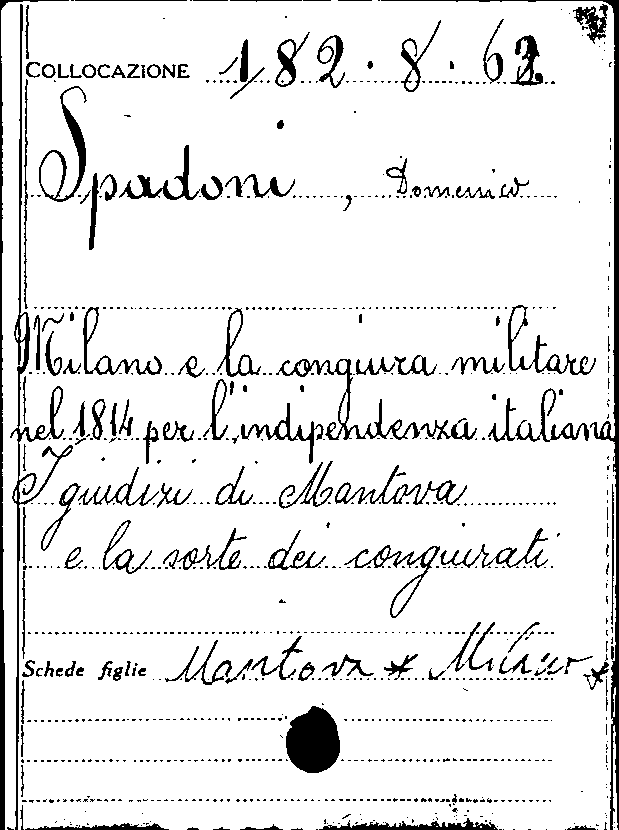 COLLOCAZIONE 182.8.62
Spadoni, Domenico
Milano e la congiura militare
nel 1814 per l'indipendenza italiana
I giudizi di Mantova
e la sorte dei congiurati
Schede figlie Mantova * Milano *